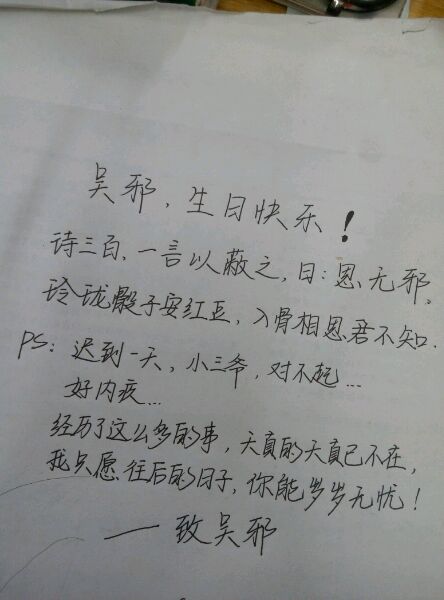 吴邪，生日快乐！
诗三百，一言以蔽之，曰：思无邪，
玲珑骰子安红豆，入骨相思君不知．
PS：迟到一天，小三爷，对不起…
好内疚…
经历了这么多的事，天真的天真已不在，
我只愿往后的日子，你能岁岁无忧！
——致吴邪